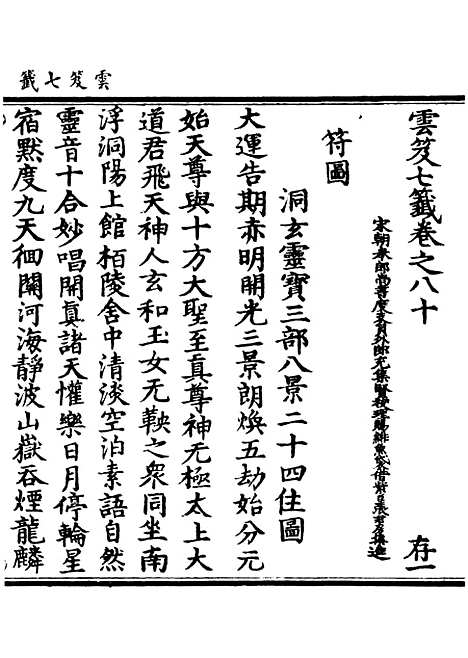 雲笈七籤
雲笈七籤卷之八十 存一
宋朝奉郎尚書度支員外郎充集賢校理賜緋魚袋借紫臣張君房集進
符圖
洞玄靈寶三部八景二十四住圖
大運告期赤明開光三景朗煥五劫始分元
始天尊與十方大聖至真尊神无極太上大
道君飛天神人玄和玉女无鞅之衆同坐南
浮洞陽上館栢陵舍中清淡空泊素語自然
靈音十合妙唱開真諸天懽樂日月停輪星
宿默度九天徊關河海靜波山嶽吞煙龍麟